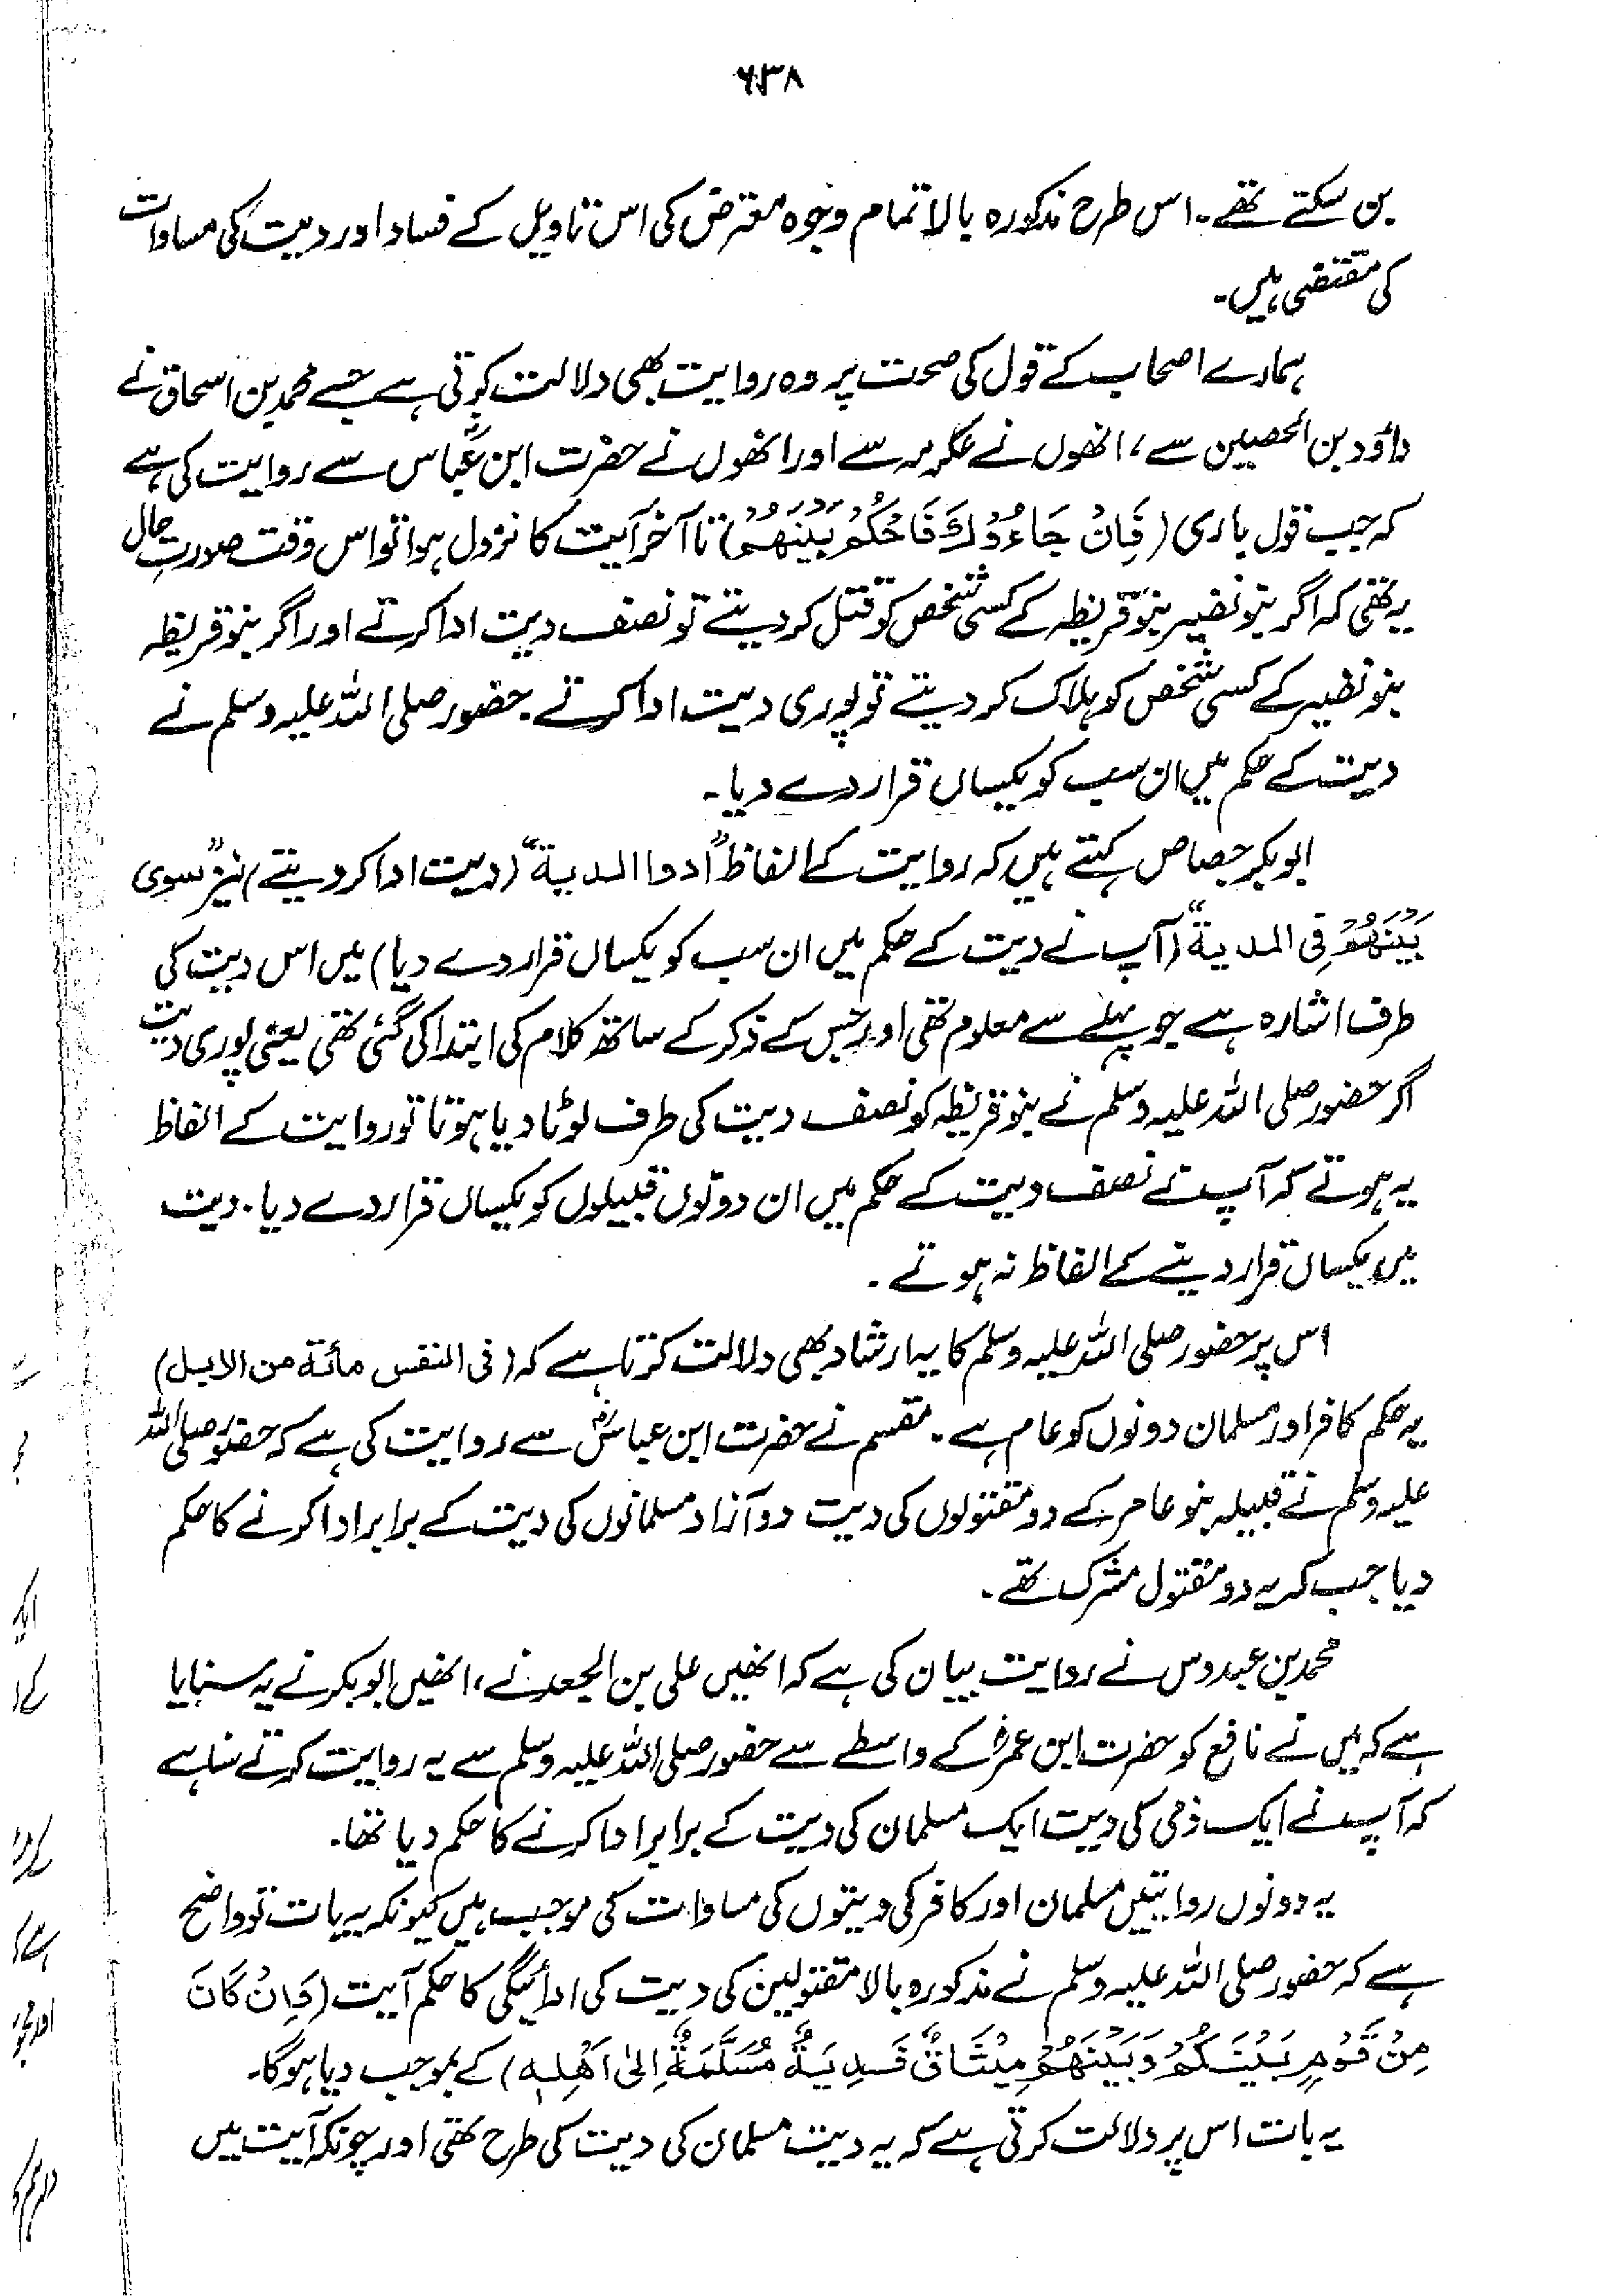 ۶۳۸
بن سکتے تھے۔ اس طرح مذکورہ بالا تمام وجوہ معترض کی اس تاویل کے فساد اور دیت کی مساوات
کی مقتضی ہیں۔
ہمارے اصحاب کے قول کی صحت پر وہ روایت بھی دلالت کرتی ہے جسے محمد بن اسحاق نے
داؤد بن الحصین سے، انھوں نے عکرمہ سے اور انھوں نے حضرت ابن عباسؓ سے روایت کی ہے
کہ جب قول باری (فَاِنْ جَاءُوْكَ فَاحْكُمْ بَيْنَهُمْ) تا آخر آیت کا نزول ہوا تو اس وقت صورت حال
یہ تھی کہ اگر بنو نضیر بنو قریظہ کے کسی شخص کو قتل کر دیتے تو نصف دیت ادا کرتے اور اگر بنو قریظہ
بنو نضیر کے کسی شخص کو ہلاک کر دیتے تو پوری دیت ادا کرتے۔ حضور صلی اللہ علیہ وسلم نے
دیت کے حکم میں ان سب کو یکساں قرار دے دیا۔
ابوبکر جصاص کہتے ہیں کہ روایت کے الفاظ "ادوا الدیة" (دیت ادا کر دیتے) نیز "سوی
بَيْنَهُمْ فِی الدیة" (آپ نے دیت کے حکم میں ان سب کو یکساں قرار دے دیا) میں اس دیت کی
طرف اشارہ ہے جو پہلے سے معلوم تھی اور جس کے ذکر کے ساتھ کلام کی ابتدا کی گئی تھی یعنی پوری دیت
اگر حضور صلی اللہ علیہ وسلم نے بنو قریظہ کو نصف دیت کی طرف لوٹا دیا ہوتا تو روایت کے الفاظ
یہ ہوتے کہ آپ نے نصف دیت کے حکم میں ان دونوں قبیلوں کو یکساں قرار دے دیا۔ دیت
میں یکساں قرار دینے کے الفاظ نہ ہوتے۔
اس پر حضور صلی اللہ علیہ وسلم کا یہ ارشاد بھی دلالت کرتا ہے کہ (فی النفس مائة من الابل)
یہ حکم کافر اور مسلمان دونوں کو عام ہے۔ مقسم نے حضرت ابن عباسؓ سے روایت کی ہے کہ حضور صلی اللہ
علیہ وسلم نے قبیلہ بنو عامر کے دو مقتولوں کی دیت دو آزاد مسلمانوں کی دیت کے برابر ادا کرنے کا حکم
دیا جب کہ یہ دو مقتول مشرک تھے۔
محمد بن عبدوس نے روایت بیان کی ہے کہ انھیں علی بن الجعد نے، انھیں ابوبکر نے یہ سنایا
ہے کہ میں نے نافع کو حضرت ابن عمرؓ کے واسطے سے حضور صلی اللہ علیہ وسلم سے یہ روایت کرتے سنا ہے
کہ آپ نے ایک ذمی کی دیت ایک مسلمان کی دیت کے برابر ادا کرنے کا حکم دیا تھا۔
یہ دونوں روایتیں مسلمان اور کافر کی دیتوں کی مساوات کی موجب ہیں کیونکہ یہ بات تو واضح
ہے کہ حضور صلی اللہ علیہ وسلم نے مذکورہ بالا مقتولین کی دیت کی ادائیگی کا حکم آیت (فَاِنْ كَانَ
مِنْ قَوْمٍ بَيْنَكُمْ وَبَيْنَهُمْ مِيْثَاقٌ فَدِيَةٌ مُسَلَّمَةٌ اِلىٰ اَهْلِهٖ) کے بموجب دیا ہوگا۔
یہ بات اس پر دلالت کرتی ہے کہ یہ دیت مسلمان کی دیت کی طرح تھی اور چونکہ آیت میں